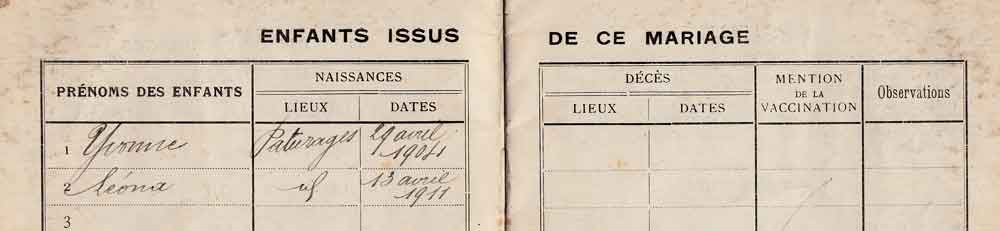 ENFANTS ISSUS DE CE MARIAGE
PRÉNOMS DES ENFANTS
NAISSANCES
LIEUX DATES
DÉCÈS
LIEUX DATES
MENTION
DE LA
VACCINATION
Observations
1 Yvonne Paturages 29 avril
1904
2 Léona id 13 avril
1911
3